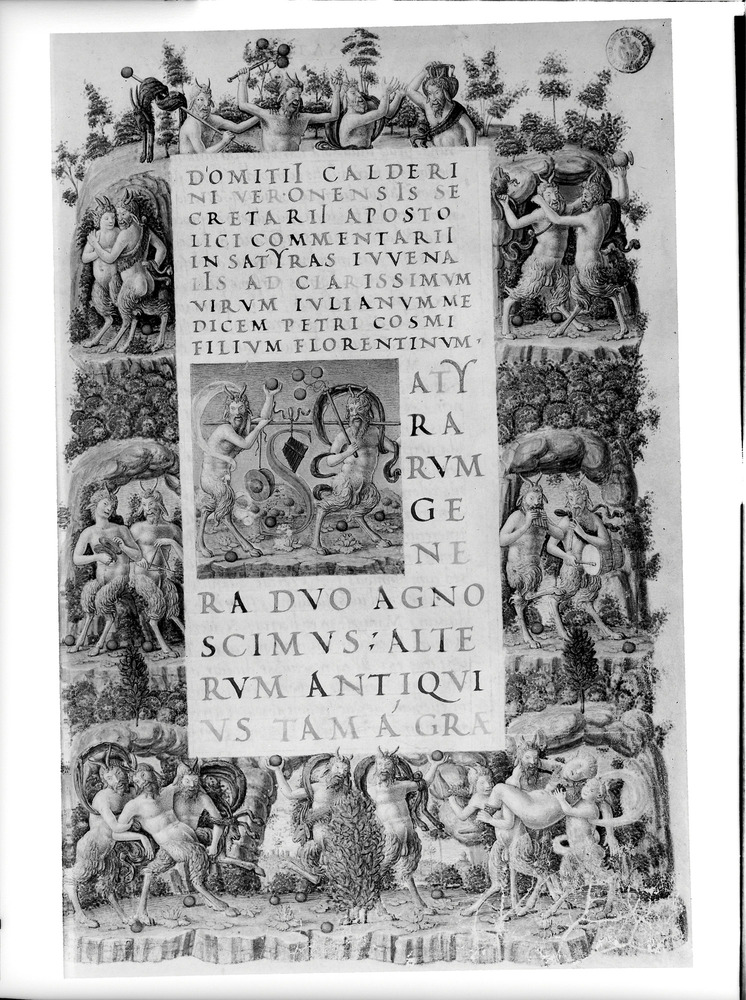 DOMITII CALDERI
NI VERONENSIS SE
CRETARII APOSTO
LICI COMMENTARII
IN SATYRAS IVVENA
LIS AD CLARISSIMVM
VIRVM IVLIANVM ME
DICEM PETRI COSMI
FILIVM FLORENTINVM.
ATY
RA
RVM
GE
NE
RA DVO AGNO
SCIMVS; ALTE
RVM ANTIQVI
VS TAM Á GRÆ